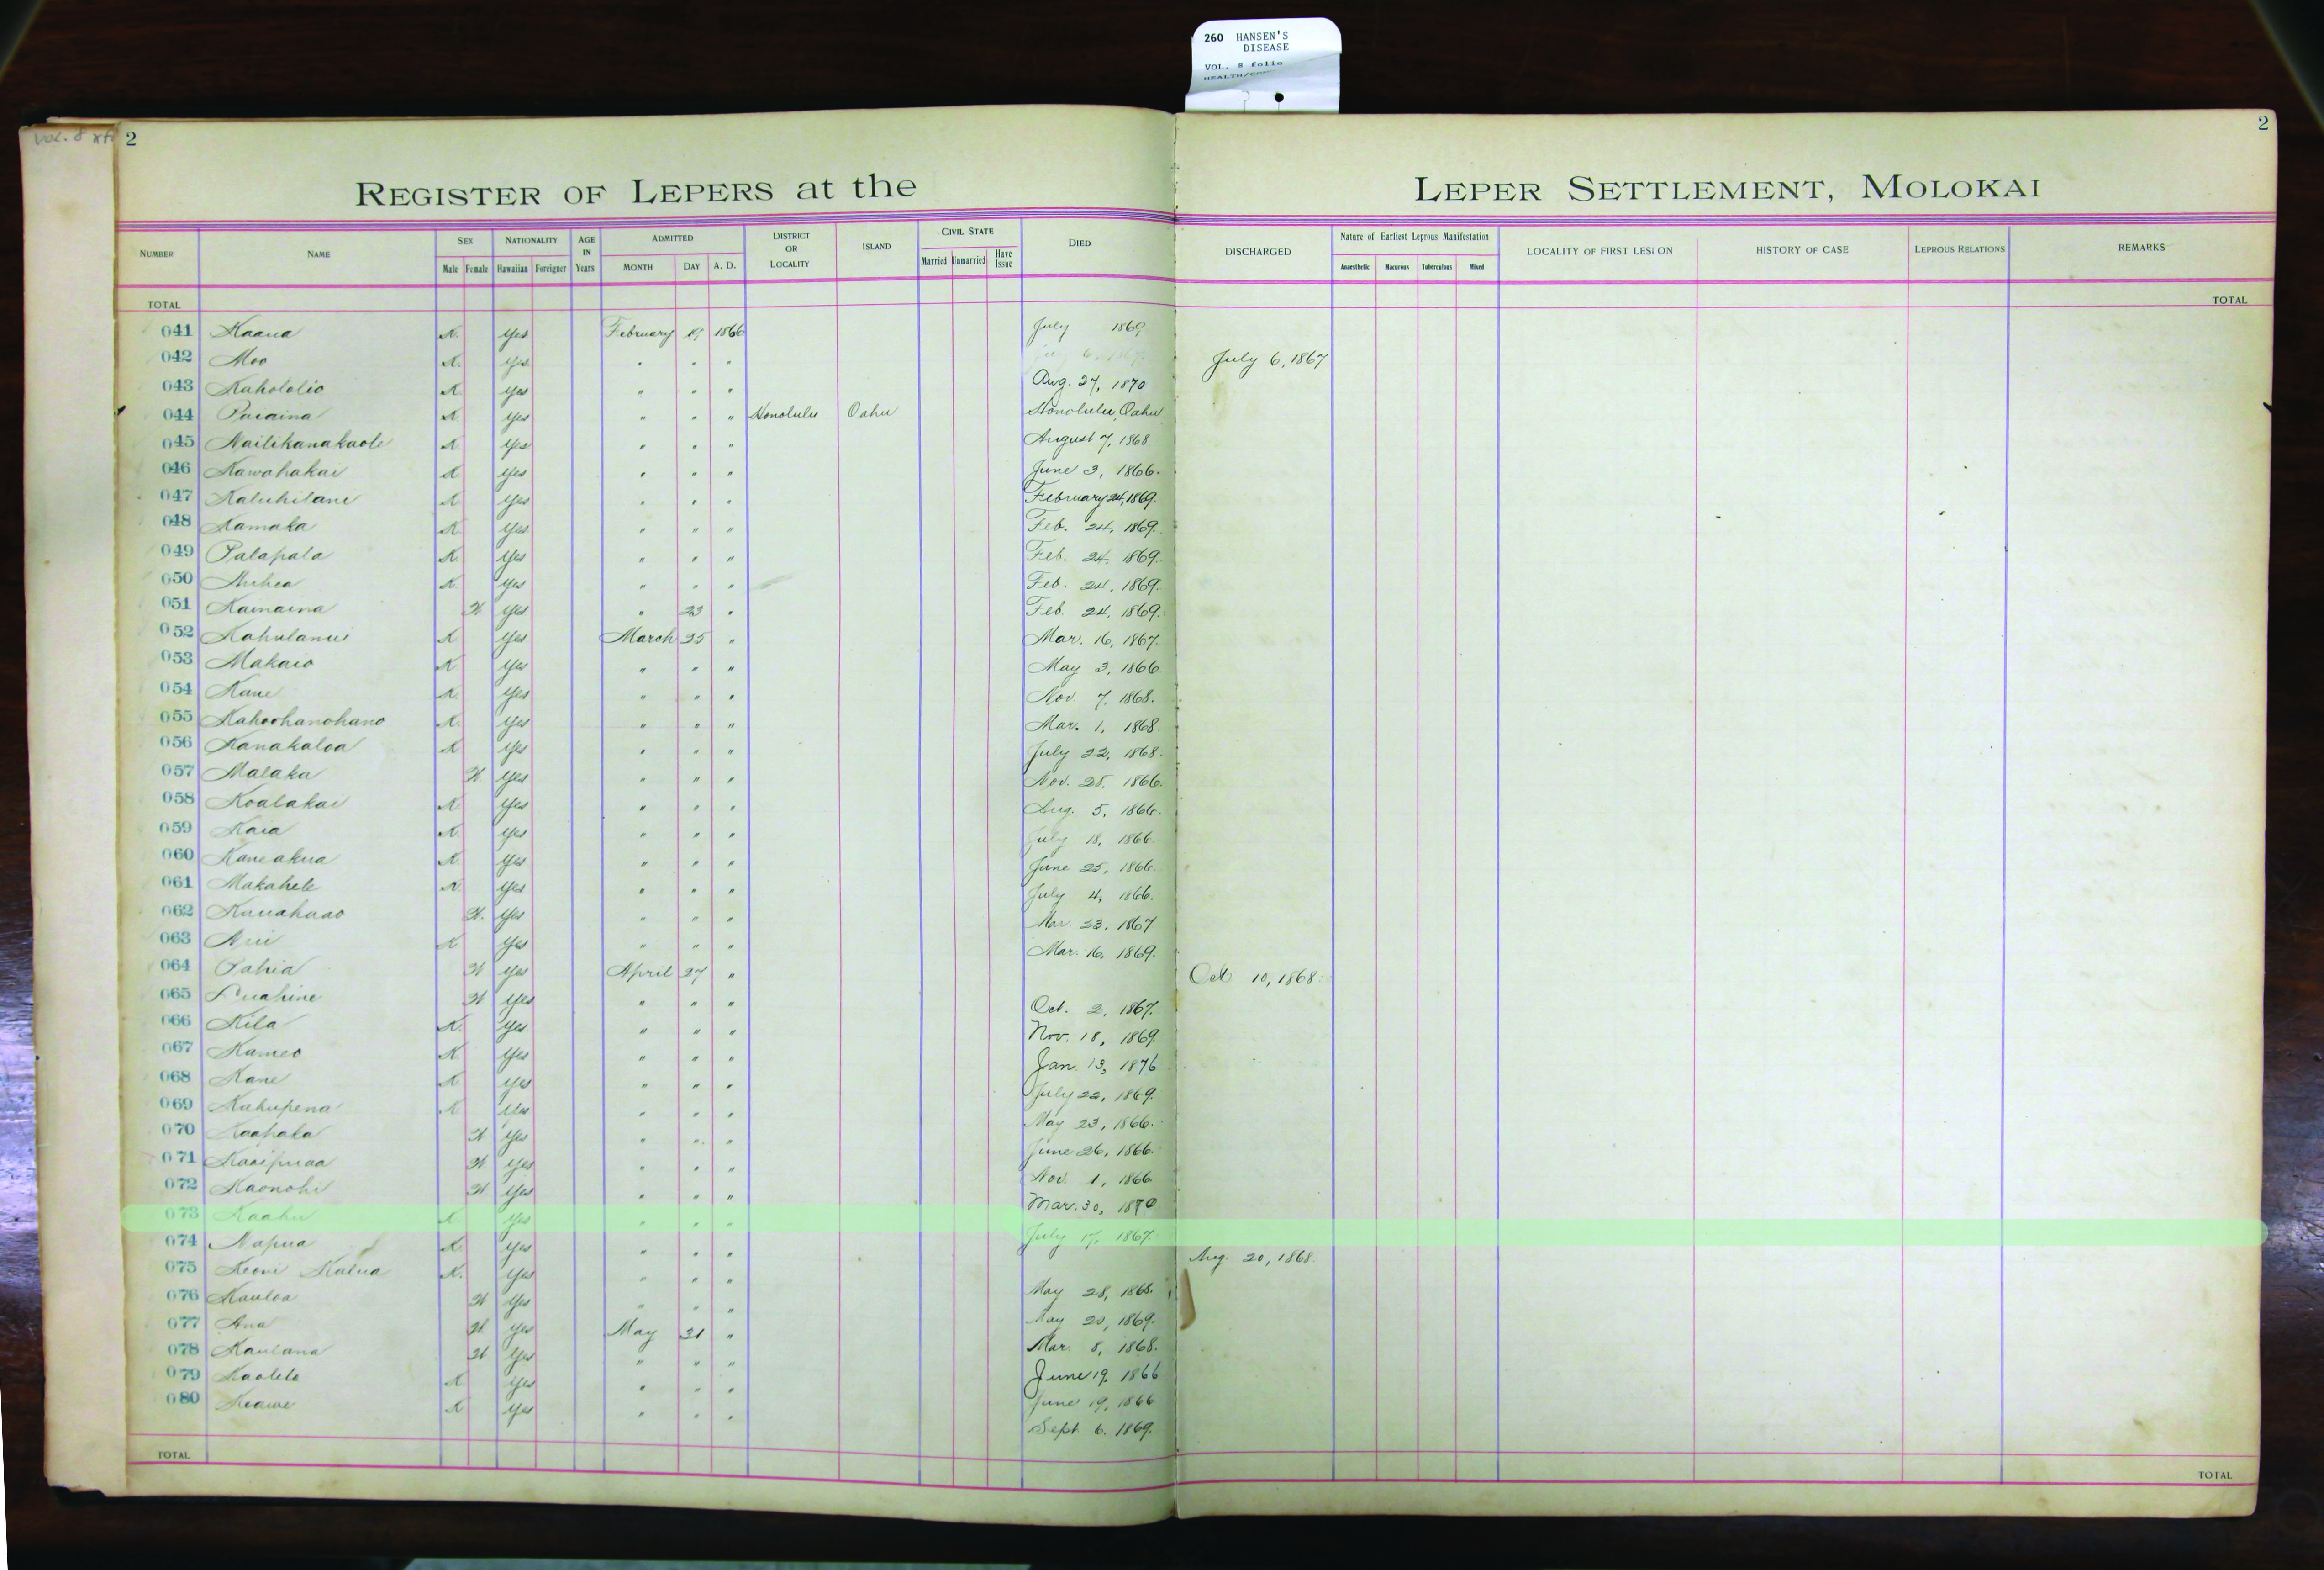 260 HANSEN'S
DISEASE
VOL. 8 folio
Vol. 8
2
2
REGISTER OF LEPERS at the LEPER SETTLEMENT, MOLOKAI
NUMBER NAME SEX Male Female NATIONALITY Hawaiian Foreigner AGE IN Years ADMITTED MONTH DAY A. D. DISTRICT OR LOCALITY ISLAND CIVIL STATE Married Unmarried Have Issue DIED DISCHARGED Nature of Earliest Leprous Manifestation Anaesthetic Macurous Tuberculous Mixed LOCALITY OF FIRST LESION HISTORY OF CASE LEPROUS RELATIONS REMARKS
TOTAL TOTAL
041 Kaaua K. Yes February 19 1866 July 1869
042 Moo K. Yes " " " July 6, 1867
043 Kahololio K Yes " " " Aug. 27, 1870
044 K Yes " " " Honolulu Oahu Honolulu, Oahu
045 Nailikanakaole K Yes " " " August 7, 1868
046 Kawahakai K Yes " " " June 3, 1866.
047 Kaluhilani K Yes " " " February 24, 1869.
048 Kamaka K Yes " " " Feb. 24, 1869.
049 Palapala K. Yes " " " Feb. 24, 1869.
050 K Yes " " " Feb. 24, 1869.
051 Kamaina W Yes " 23 " Feb. 24, 1869.
052 K Yes March 25 " Mar. 16, 1867.
053 Makaio K Yes " " " May 3, 1866
054 Kane K. Yes " " " Nov 7, 1868.
055 Kahoohanohano K. Yes " " " Mar. 1, 1868.
056 Kanakaloa K Yes " " " July 22, 1868.
057 Malaka W Yes " " " Nov. 28, 1866.
058 Koalakai K Yes " " " Aug. 5, 1866.
059 Kaia K. Yes " " " July 18, 1866.
060 Kaneakua K Yes " " " June 25, 1866.
061 Makahele K. Yes " " " July 4, 1866.
062 Kauahaao W. Yes " " " Mar. 23, 1867
063 K Yes " " " Mar. 16, 1869.
064 Pahia W Yes April 27 " Oct 10, 1868.
065 Puahine W Yes " " " Oct. 2, 1867.
066 Kila K. Yes " " " Nov. 18, 1869.
067 Kameo K Yes " " " Jan 13, 1876
068 Kane K Yes " " " July 22, 1869.
069 Kahupena K Yes " " " May 23, 1866.
070 Kaahala W Yes " " " June 26, 1866.
071 Kaaipuaa W. Yes " " " Nov. 1, 1866
072 Kaonohi W Yes " " " Mar. 30, 1870
073 Kaahu K. Yes " " " July 17, 1867.
074 Napua K Yes " " " Aug. 20, 1868.
075 Keoni Kalua K. Yes " " " May 28, 1868.
076 Kauloa W Yes " " " May 20, 1869.
077 Ana W. Yes May 31 " Mar. 8, 1868.
078 Kaulana W Yes " " " June 19, 1866
079 Kaolelo K Yes " " " June 19, 1866
080 Keawe K Yes " " " Sept 6. 1869.
TOTAL TOTAL